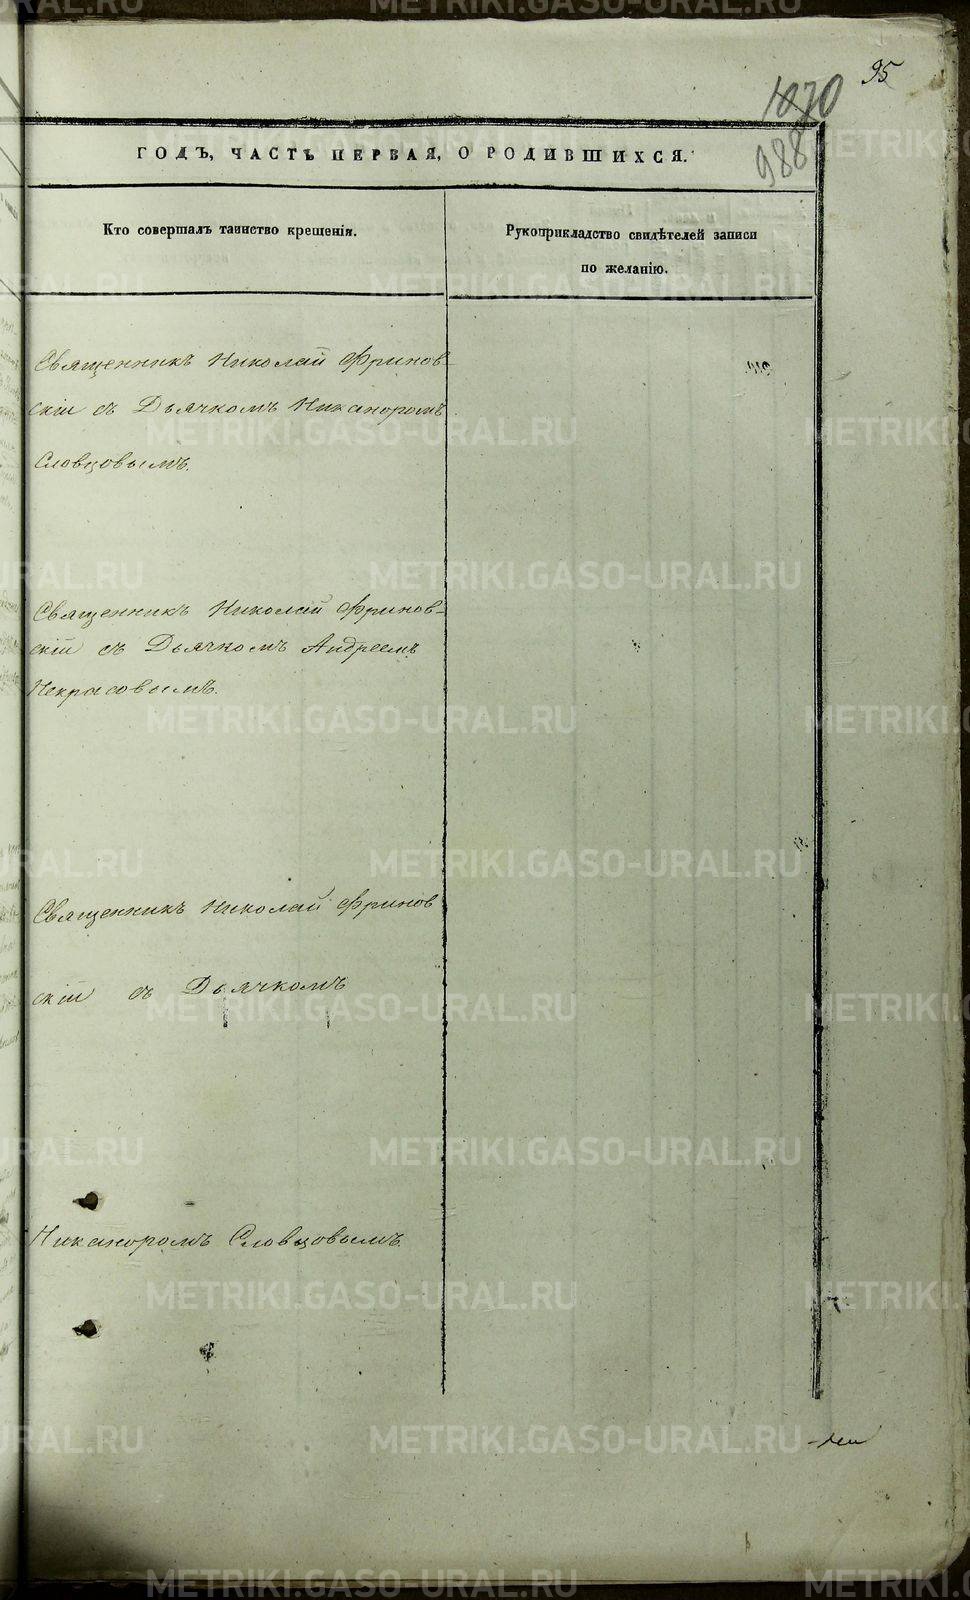 95
1070
988
ГОДЪ, ЧАСТЬ ПЕРВАЯ, О РОДИВШИХСЯ.
Кто совершалъ таинство крещенія.
Рукоприкладство свидѣтелей записи
по желанію.
Священникъ Николай Фринов-
скій съ Дьячкомъ Никаноромъ
Словцовымъ.
Священникъ Николай Фринов-
скій съ Дьячкомъ Андреемъ
Некрасовымъ.
Священникъ Николай Фринов
скій съ Дьячкомъ
Никаноромъ Словцовымъ.
METRIKI.GASO-URAL.RU